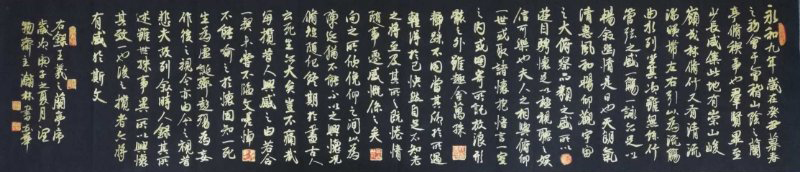 永和九年歲在癸丑暮春
之初會于會稽山陰之蘭
亭脩禊事也群賢畢至
少長咸集此地有崇山峻
嶺茂林脩竹又有清流
激湍映帶左右引以為流觴
曲水列坐其次雖無絲竹
管弦之盛一觴一詠亦足以
暢敘幽情是日也天朗氣
清惠風和暢仰觀宇宙
之大俯察品類之盛所以
遊目騁懷足以極視聽之娛
信可樂也夫人之相與俯仰
一世或取諸懷抱悟言一室
之內或因寄所託放浪形
骸之外雖趣舍萬殊
靜躁不同當其欣於所遇
暫得於己快然自足不知老
之將至及其所之既惓情
隨事遷感慨係之矣
向之所欣俛仰之間以為
陳迹猶不能不以之興懷況
脩短隨化終期於盡古人
云死生亦大矣豈不痛哉
每攬昔人興感之由若合
一契未嘗不臨文嗟悼
不能喻之於懷固知一死
生為虛誕齊彭殤為妄
作後之視今亦由今之視昔
悲夫故列敘時人錄其所
述雖世殊事異所以興懷
其致一也後之攬者亦將
有感於斯文
右錄王羲之蘭亭序
歲次丙子之夏月
齋主瀚林書